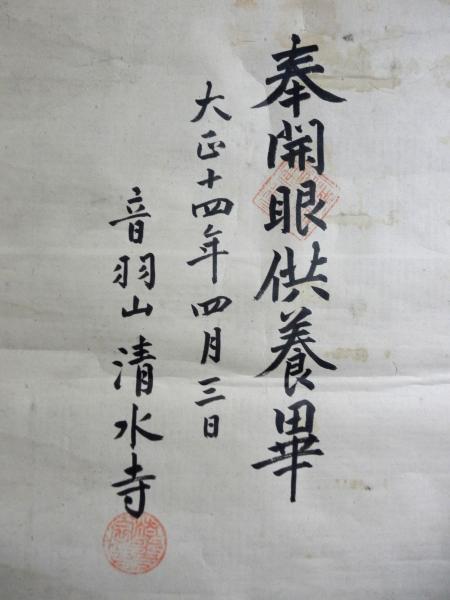 奉開眼供養畢
大正十四年四月三日
音羽山清水寺